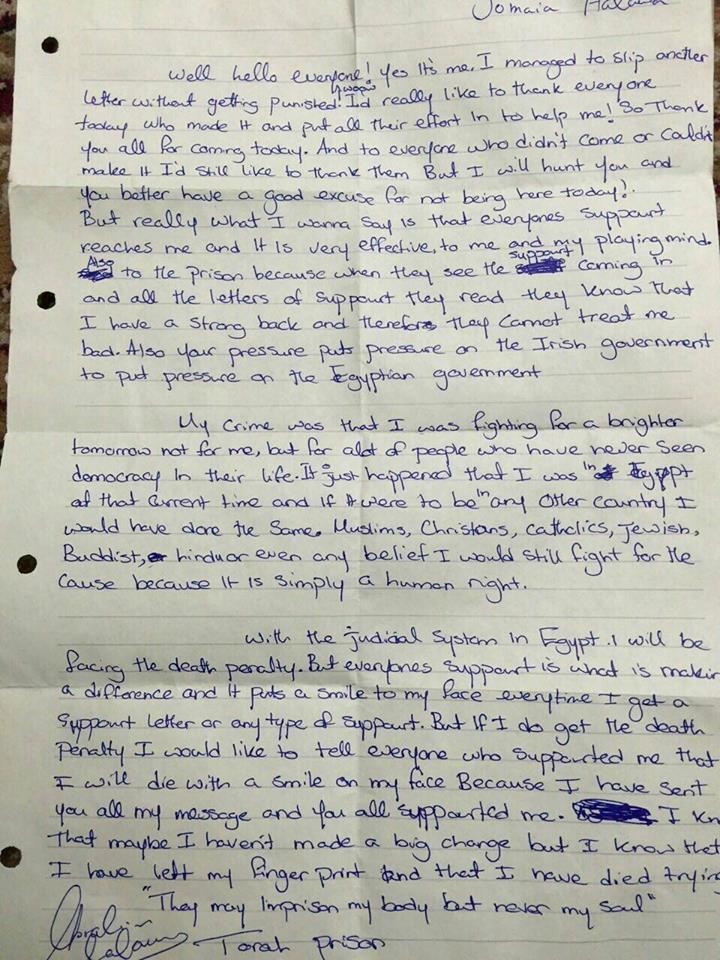 Jomaia Halawa
Well hello everyone! Yes It's me. I managed to slip another
letter without getting punished! I'd really like to thank everyone
today who made it and put all their effort In to help me! So Thank
You all for coming today. And to everyone who didn't come or Couldn't
make it I'd still like to thank them But I will hunt you and
you better have a good excuse for not being here today!
But really what I wanna say is that everyones suppourt
reaches me and It Is very effective, to me and my playing mind.
Also to the prison because when they see the suppourt coming in
and all the letters of suppourt they read they know that
I have a strong back and therefore they cannot treat me
bad. Also your pressure puts pressure on the Irish government
to put pressure on the Egyptian government
My crime was that I was fighting for a brighter
tomorrow not for me, but for alot of people who have never seen
democracy In their life. It just happened that I was In Egypt
at that current time and if it were to be in any other country I
would have done the same. Muslims, Christians, Catholics, Jewish,
Buddist, hindu or even any belief I would still fight for the
cause because It Is simply a human right.
With the judicial system in Egypt. I will be
facing the death penalty. But everyones suppourt is what is makin
a difference and It puts a smile to my face everytime I get a
suppourt letter or any type of suppourt. But If I do get the death
penalty I would like to tell everyone who suppourted me that
I will die with a smile on my face Because I have sent
you all my message and you all suppourted me. I kn
That maybe I haven't made a big change but I know that
I have left my finger print and that I have died trying
"They may Imprison my body but never my soul"
Torah prison